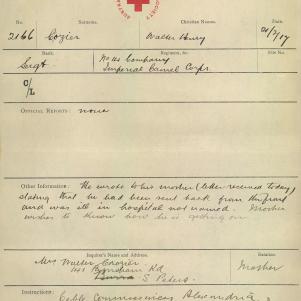 SOCIETY
No. Surname. Christian Names. Date.
2166 Cozier Walter Henry 21/2/17
Rank. Regiment, &c.
Sergt. No 11 Company
Imperial Camel Corps.
O/L
OFFICIAL REPORTS : none
Other Information : He wrote to his mother (letter received today)
stating that he had been sent back from the front
and was still in hospital not named. Mother
wishes to know how he is getting on
Inquirer's Name and Address. Relation.
Mrs Walter Crozier Mother
141 Rd
S Peters.
Instructions: Cable Commissioners Alexandria